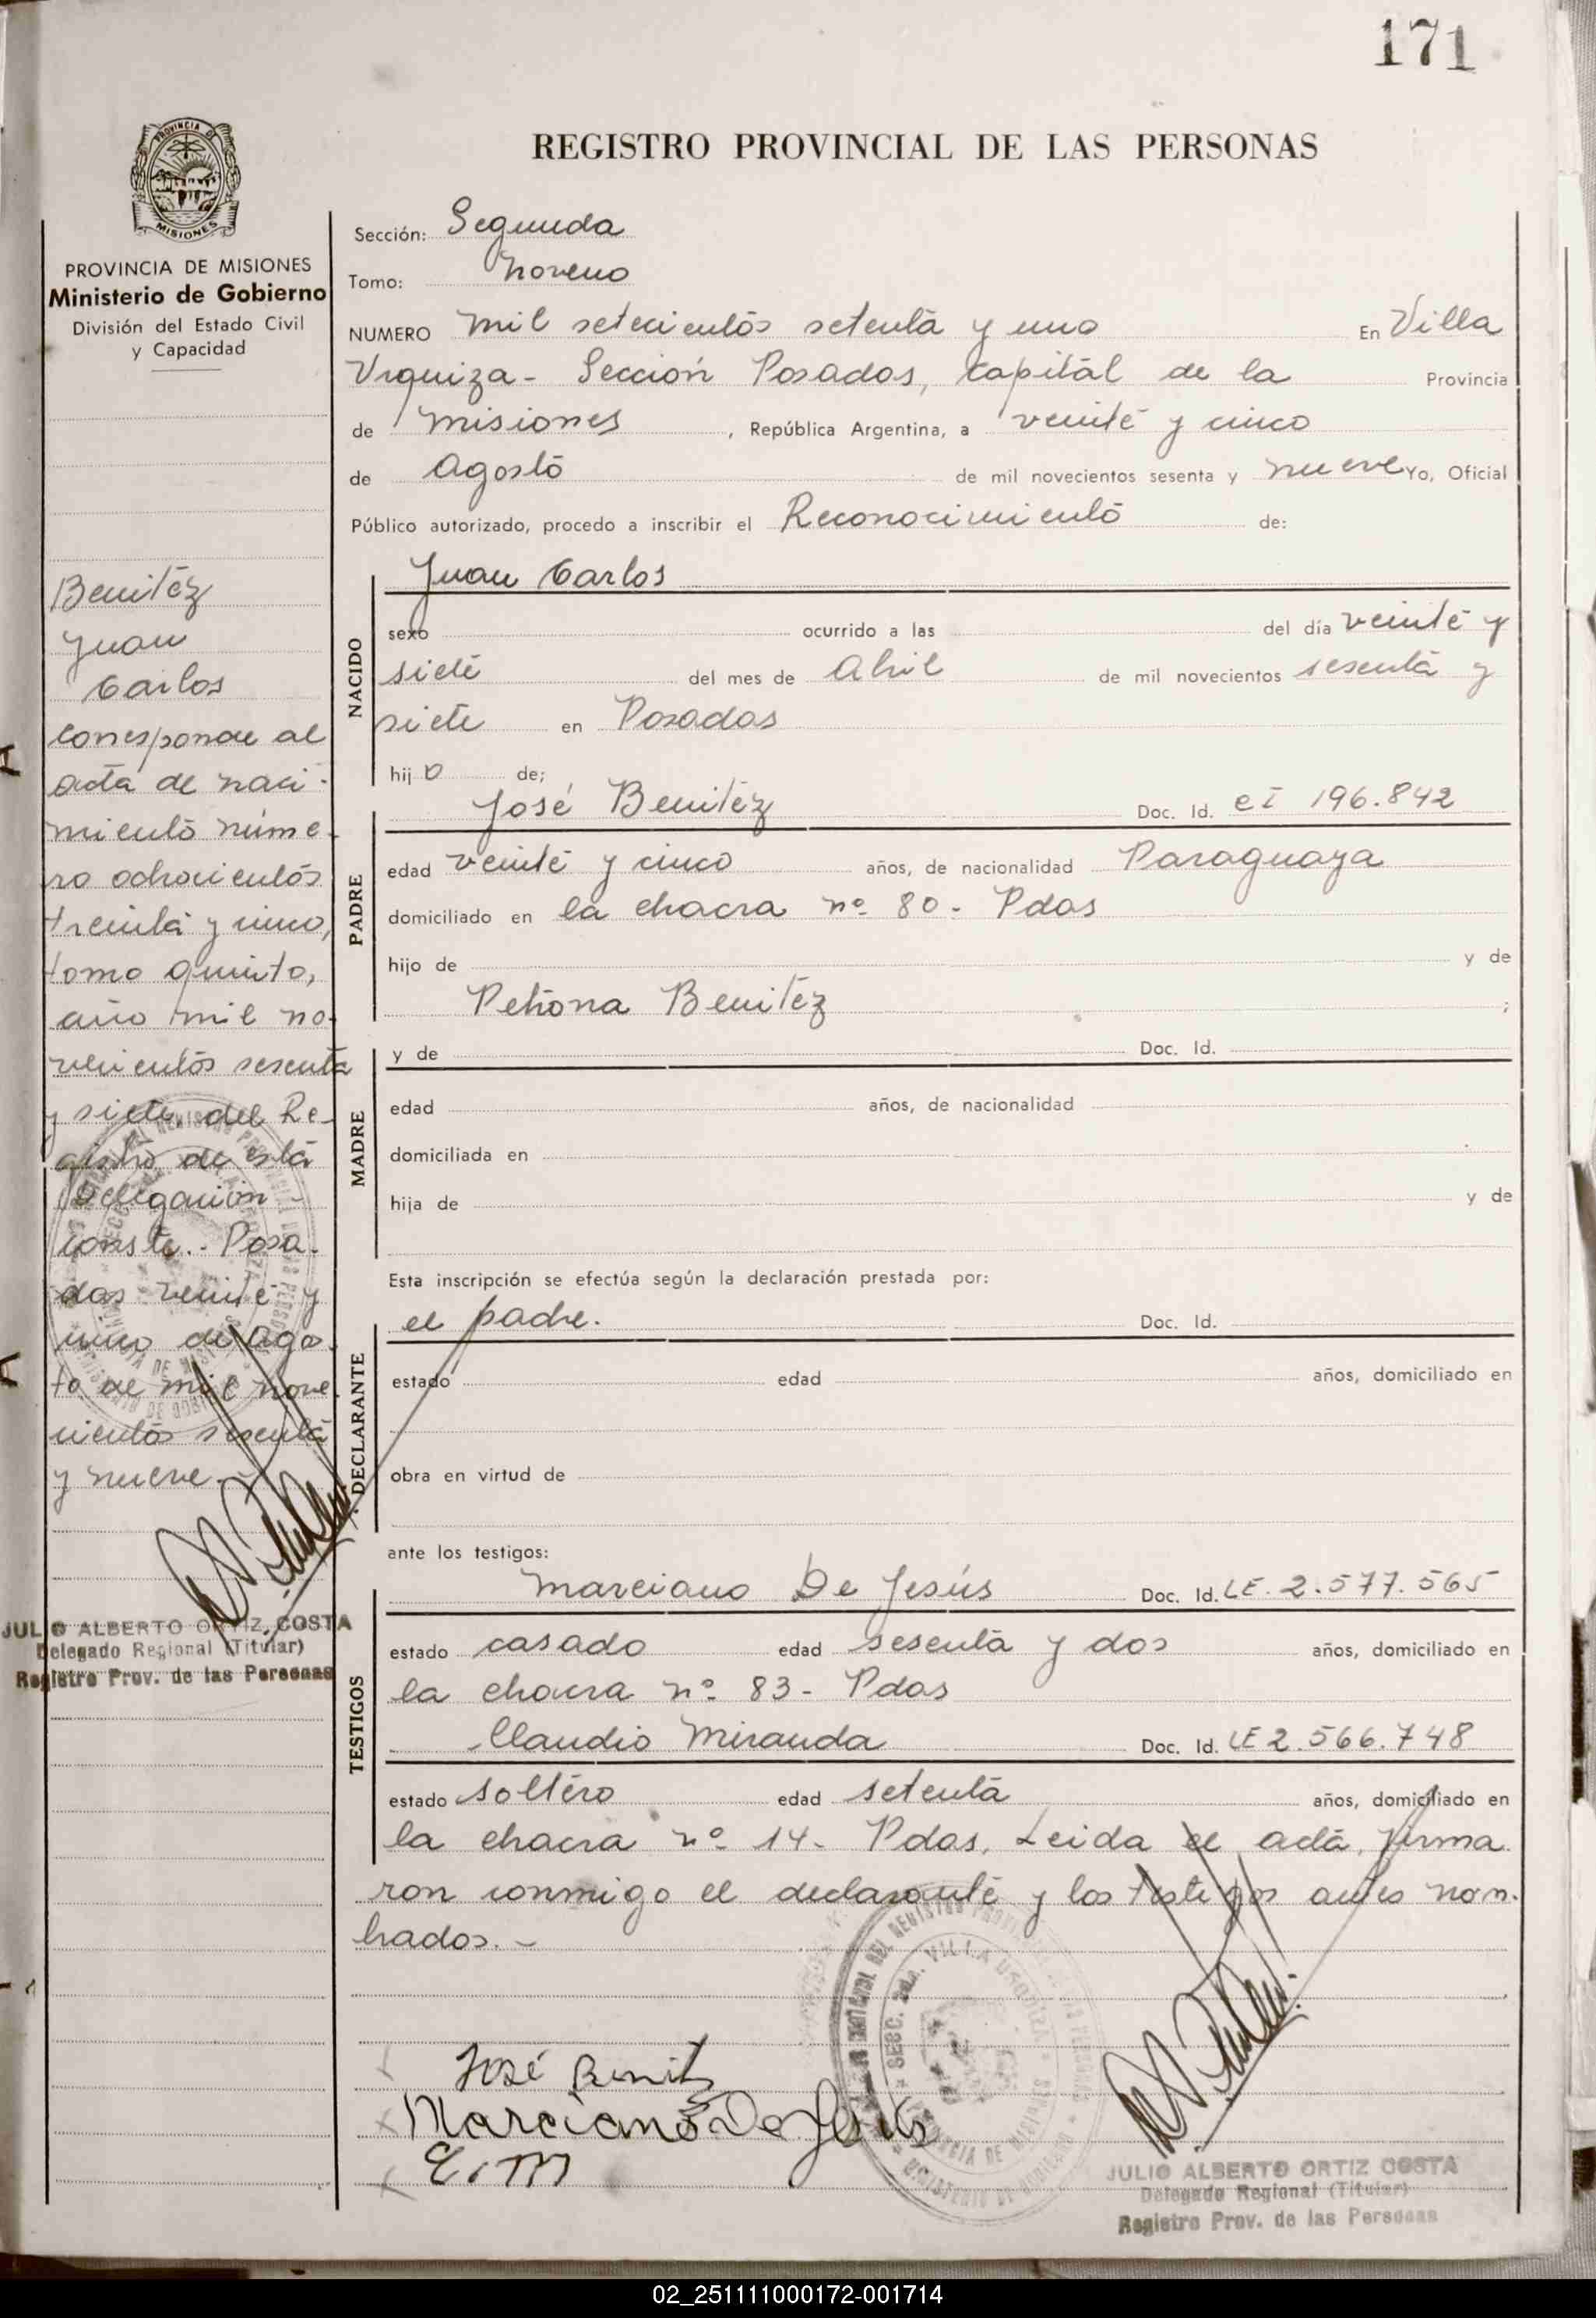 171
REGISTRO PROVINCIAL DE LAS PERSONAS
PROVINCIA DE MISIONES
PROVINCIA DE MISIONES
Ministerio de Gobierno
División del Estado Civil
y Capacidad
Benitéz
Juan
Carlos
corresponde al
acta de naci-
miento núme-
ro ochocientos
treinta y cinco,
tomo quinto,
año mil no-
vecientos sesenta
y siete, del Re-
gistro de esta
Delegación -
conste.- Posa-
das veinte y
cinco de Agos-
to de mil nove-
cientos sesenta
y nueve.-
JULIO ALBERTO ORTIZ COSTA
Delegado Regional (Titular)
Registro Prov. de las Personas
Sección: Segunda
Tomo: Noveno
NUMERO mil setecientos setenta y uno En Villa
Urquiza - Sección Posadas, Capital de la Provincia
de Misiones, República Argentina, a veinte y cinco
de Agosto de mil novecientos sesenta y nueve Yo, Oficial
Público autorizado, procedo a inscribir el Reconocimiento de:
NACIDO
Juan Carlos
sexo ocurrido a las del día veinte y
siete del mes de Abril de mil novecientos sesenta y
siete en Posadas
hijo de;
PADRE
José Benitéz Doc. Id. CI 196.842
edad veinte y cinco años, de nacionalidad Paraguaya
domiciliado en la chacra nº 80 - Pdas
hijo de y de
Petrona Benitéz ;
MADRE
y de Doc. Id.
edad años, de nacionalidad
domiciliada en
hija de y de
Esta inscripción se efectúa según la declaración prestada por:
DECLARANTE
el padre. Doc. Id.
estado edad años, domiciliado en
obra en virtud de
ante los testigos:
TESTIGOS
Marciano De Jesús Doc. Id. LE. 2.577.565
estado casado edad sesenta y dos años, domiciliado en
la chacra nº 83 - Pdas
Claudio Miranda Doc. Id. LE 2.566.748
estado soltero edad setenta años, domiciliado en
la chacra nº 14 - Pdas. Leida el acta, firma-
ron conmigo el declarante y los testigos antes nom-
brados. -
José Benitz
Marciano De Jesús
JULIO ALBERTO ORTIZ COSTA
Delegado Regional (Titular)
Registro Prov. de las Personas
02_251111000172-001714